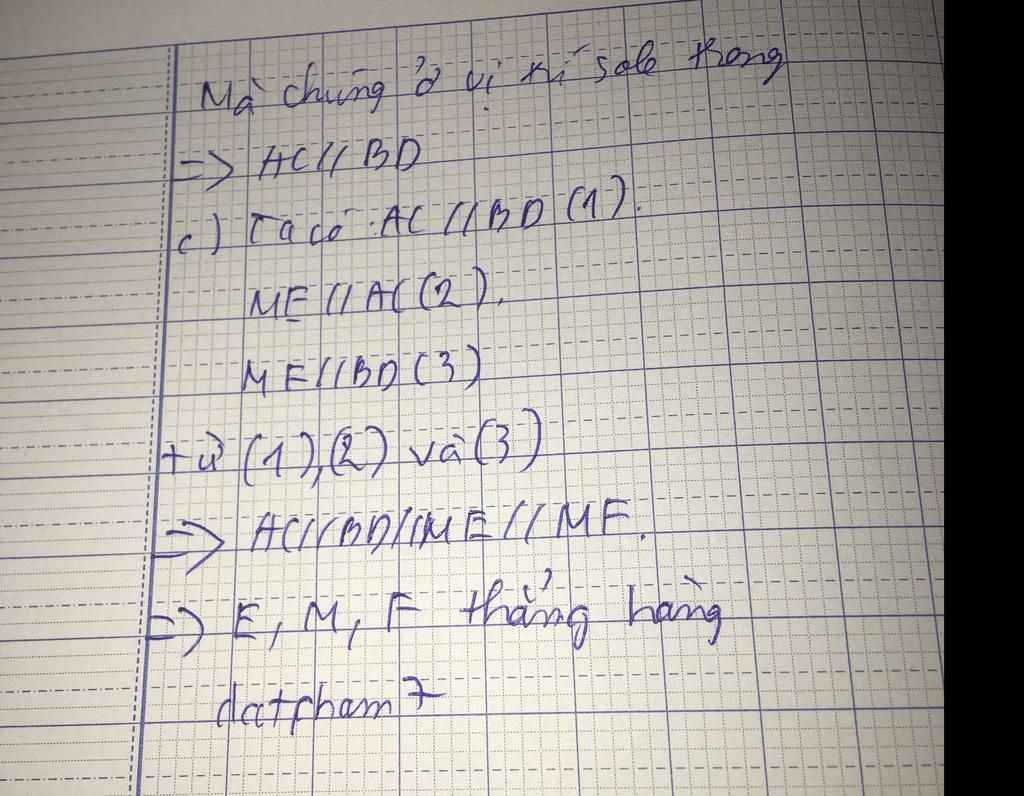 Mà chúng ở vị trí sole trong
=> AC//BD
c) Ta có: AC//BD (1).
ME//AC (2).
ME//BD (3)
từ (1), (2) và (3)
=> AC//BD//ME//MF.
=> E, M, F thẳng hàng
datpham7